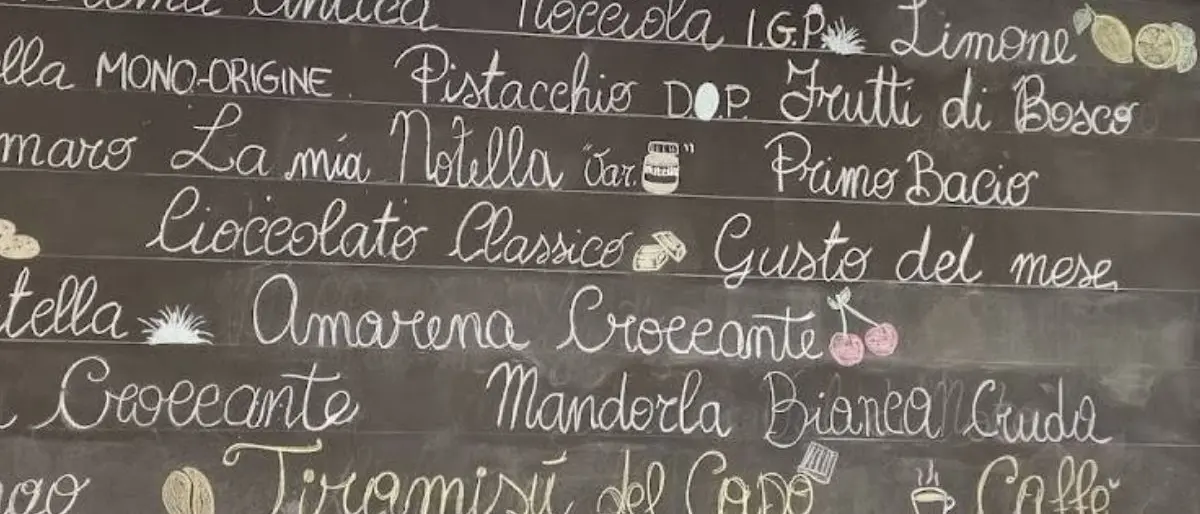 Nocciola I.G.P. Limone
lla MONO-ORIGINE Pistacchio D.O.P. Frutti di Bosco
maro La mia Notella "Var. Nutella" Primo Bacio
Cioccolato Classico Gusto del mese
tella Amarena Croccante
Croccante Mandorla Bianca Cruda
Tiramisú del Capo Caffè